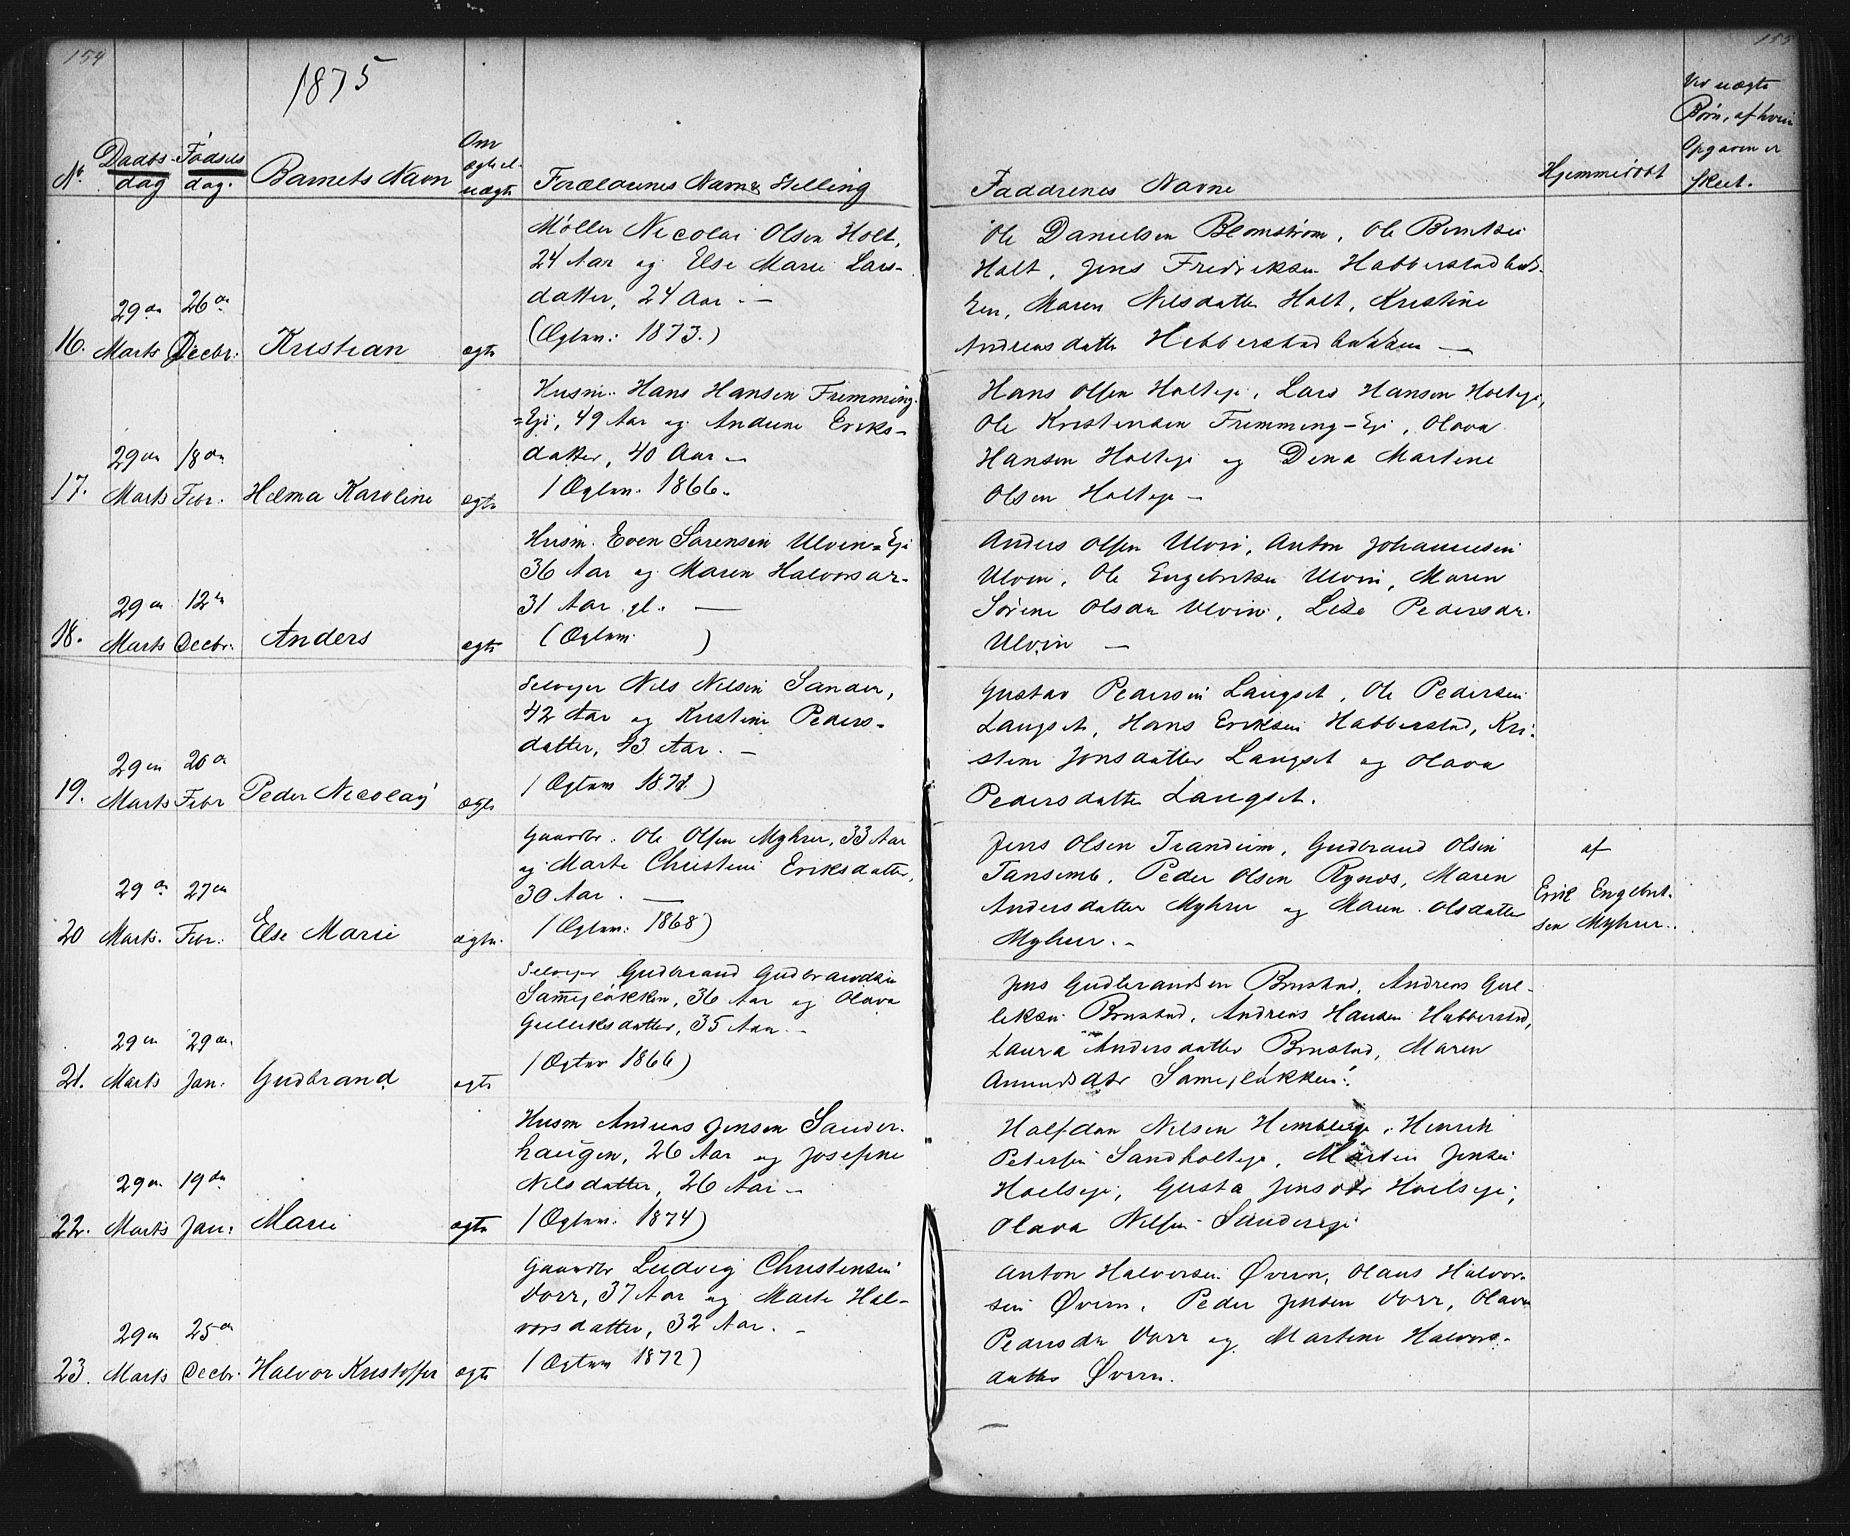 154
155
1875
Ved uægte
Børn, af hvem
Opgaven er
skeet.
Om
ægte el.
uægte
Nr. Daabsdag Fødselsdag. Barnets Navn Forældrenes Navne & Stilling Faddrenes Navne Hjemmedøbt
16. 29de Marts 26de Decbr. Kristian ægte
Møller Nicolai Olsen Holt,
24 Aar og Else Marie Lars-
datter, 24 Aar. —
(Ægtev: 1873.)
Ole Danielsen Blomstrøm, Ole Berntsen
Holt, Jens Fredriksen Habberstadbak-
ken, Maren Nilsdatter Holt, Kristine
Andreasdatter Habberstadbakken —
17. 29de Marts 18de Febr. Helma Karoline ægte
Husm. Hans Hansen Fremming-
=Eje, 49 Aar og Andrine Eriks-
datter, 40 Aar —
/ Ægtev. 1866.
Hans Olsen Holteje, Lars Hansen Holteje,
Ole Kristensen Fremming-Eje, Olava
Hansen Holteje og Dina Martine
Olsen Holteje —
18. 29de Marts 12te Decbr. Anders ægte
Husm. Even Sørensen Ulvin=Eje
36 Aar og Maren Halvorsdr-
31 Aar gl. —
(Ægtev. )
Anders Olsen Ulvin, Anton Johannesen
Ulvin, Ole Engebretsen Ulvin, Maren
Sørine Olsdr Ulvin, Lise Pedersdr.
Ulvin —
19. 29de Marts 20de Febr Peder Nicolay ægte
Selvejer Nils Nilsen Sander,
42 Aar og Kristine Peders-
datter, 43 Aar. —
/ Ægtev 1871.)
Gustav Pedersen Langset, Ole Pedersen
Langset, Hans Eriksen Habberstad, Kri-
stine Jonsdatter Langset og Olava
Pedersdatter Langset.
20 29de Marts. 27de Febr: Else Marie ægte.
Gaardbr. Ole Olsen Myhrer, 33 Aar
og Marte Christine Eriksdatter,
30 Aar. —
/ Ægtev: 1868)
Jens Olsen Trandum, Gudbrand Olsen
Tansemb, Peder Olsen Rynes, Maren
Andersdatter Myhrer og Maren Olsdatter
Myhrer. —
af
Erik Engebret-
sen Myhrer.
21. 29de Marts 29de Jan. Gudbrand ægte
Selvejer Gudbrand Gudbrandsen
Samejeløkken, 36 Aar og Olava
Gulliksdatter, 35 Aar. —
/ Ægtev 1866)
Jens Gudbrandsen Brustad, Andreas Gul-
liksen Brustad, Andreas Hansen Habberstad,
Laura Andersdatter Brustad, Maren
Amundsdtr Samejeløkken.
22. 29de Marts 19de Jan: Marie ægte
Husm Andreas Jensen Sander-
haugen, 26 Aar og Josefine
Nilsdatter, 26 Aar —
/ Ægtev. 1874)
Halfdan Nilsen Himbleje, Henrik
Petersen Sandholteje, Martin Jensen
Hoelseje, Gusta Jensdtr Hoelseje,
Olava Nilsen Sandereje
23. 29de Marts 25de Decbr. Halvor Kristoffer ægte
Gaardbr Ludvig Christensen
Dorr, 37 Aar og Marte Hal-
vorsdatter, 32 Aar. —
/ Ægtev 1872)
Anton Halvorsen Øvern, Olaus Halvor-
sen Øvern, Peder Jensen Dorr, Olava
Pedersdr Dorr og Martine Halvors-
datter Øvern.